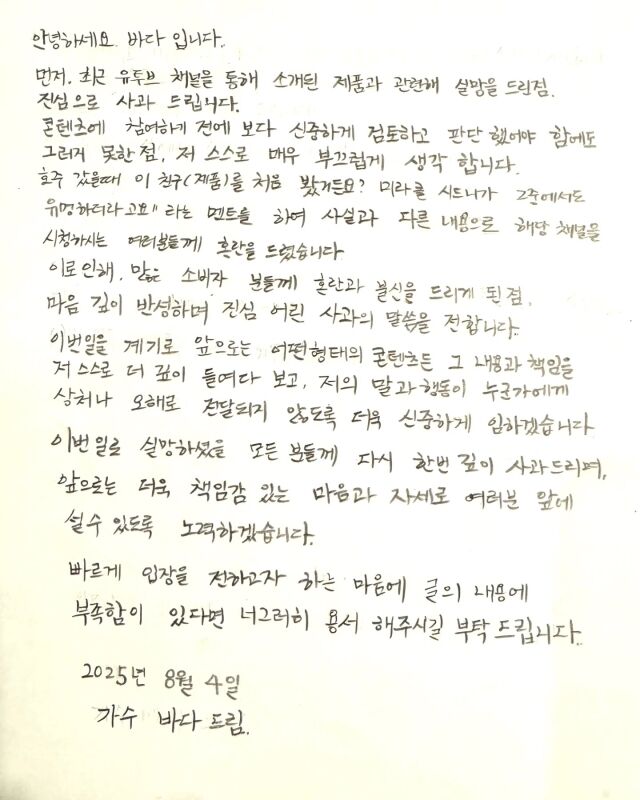 안녕하세요. 바다 입니다.
먼저, 최근 유투브 채널을 통해 소개된 제품과 관련해 실망을 드린점,
진심으로 사과 드립니다.
콘텐츠에 참여하기 전에 보다 신중하게 검토하고 판단 했어야 함에도
그러지 못한 점, 저 스스로 매우 부끄럽게 생각 합니다.
호주 갔을때 이 친구(제품)를 처음 봤거든요? 미라클 시드니가 그중에서도
유명하더라고요" 라는 멘트을 하여 사실과 다른 내용으로 해당 채널을
시청하시는 여러분들께 혼란을 드렸습니다
이로인해, 많은 소비자 분들께 혼란과 불신을 드리게 된 점,
마음 깊이 반성하며 진심 어린 사과의 말씀을 전합니다.
이번일을 계기로 앞으로는 어떤형태의 콘텐츠든 그 내용과 책임을
저 스스로 더 깊이 들여다 보고, 저의 말과 행동이 누군가에게
상처나 오해로 전달되지 않도록 더욱 신중하게 임하겠습니다
이번 일로 실망하셨을 모든 분들께 다시 한번 깊이 사과드리며,
앞으로는 더욱 책임감 있는 마음과 자세로 여러분 앞에
설 수 있도록 노력하겠습니다.
빠르게 입장을 전하고자 하는 마음에 글의 내용에
부족함이 있다면 너그러히 용서 해주시길 부탁 드립니다.
2025년 8월 4일
가수 바다 드림.